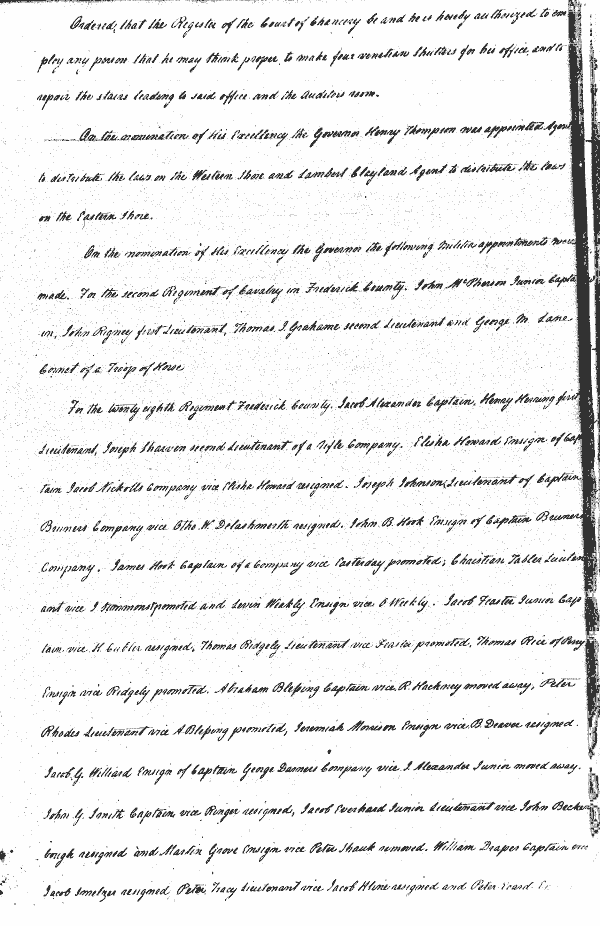 Ordered, that the Register of the Court of Chancery be and he is hereby authorized to em
ploy any person that he may think proper, to make four venetian shutters for his office, and to
repair the stairs leading to said office and the Auditors room.
On the nomination of His Excellency the Governor Henry Thompson was appointed Agent
to distribute the laws on the Western Shore and Lambert Clayland Agent to distribute the laws
on the Eastern Shore.
On the nomination of His Excellency the Governor the following Militia appointments were
made. For the second Regiment of Cavalry in Frederick County. John McPherson Junior Capta
in, John Rigney first Lieutenant, Thomas J. Grahame second Lieutenant and George M. Lane
Cornet of a Troop of Horse
For the twenty eighth Regiment Frederick County. Jacob Alexander Captain, Henry Herring first
Lieutenant, Joseph Sharven second Lieutenant of a rifle Company. Elisha Howard Ensign of Cap
tain Jacob Nickolls Company vice Elisha Howard resigned. Joseph Johnson Lieutenant of Captain
Bruners Company vice Otho W. Delashmerth resigned. John B. Hook Ensign of Captain Bruners
Company. James Hook Captain of a Company vice Easterday promoted; Christian Tabler Lieuten
ant vice J promoted and Levin Weakly Ensign vice O Weekly. Jacob Feaster Junior Cap
tain vice H. resigned, Thomas Ridgely Lieutenant vice Feaster promoted, Thomas Rice of Perry
Ensign vice Ridgely promoted. Abraham Blessing Captain vice R. Hackney moved away, Peter
Rhodes Lieutenant vice A. Blessing promoted, Jeremiah Morrison Ensign vice B. Deaver resigned.
Jacob G. Williard Ensign of Captain George Darners Company vice J. Alexander Junior moved away.
John G. Smith Captain vice Ringer resigned, Jacob Everhard Junior Lieutenant vice John Becken
bough resigned and Martin Grove Ensign vice Peter Shauk removed. William Draper Captain vice
Jacob Smeltzer resigned Peter Tracy Lieutenant vice Jacob Hline resigned and Peter